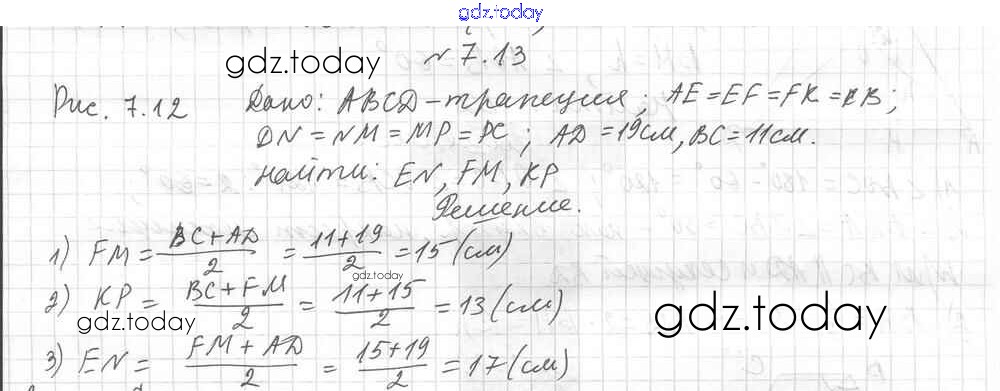 gdz.today
№ 7.13
gdz.today
Рис. 7.12 Дано: ABCD – трапеция; AE = EF = FK = KB;
DN = NM = MP = PC; AD = 19см, BC = 11см.
Найти: EN, FM, KP
Решение.
1) FM = (BC + AD)/2 = (11+19)/2 = 15 (см)
gdz.today
2) KP = (BC + FM)/2 = (11+15)/2 = 13 (см)
gdz.today
gdz.today
3) EN = (FM + AD)/2 = (15+19)/2 = 17 (см)